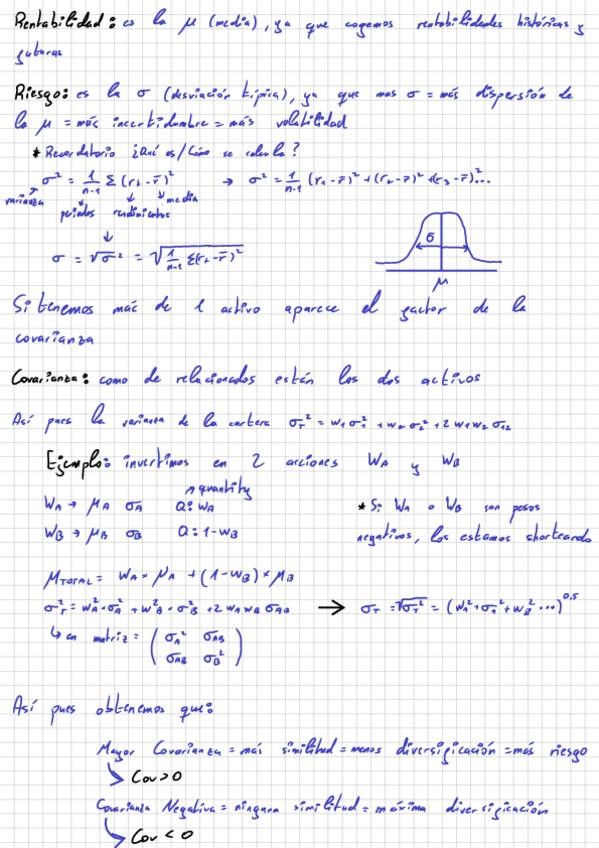 Rentabilidad: es la μ (media), ya que cogemos rentabilidades históricas y
futuras
Riesgo: es la σ (desviación típica), ya que mas σ = más dispersión de
la μ = más incertidumbre = más volatilidad
* Recordatorio ¿Qué es/Cómo se calcula?
σ² = 1/n-1 Σ (rᵢ - r̄)² → σ² = 1/n-1 (r₁ - r̄)² + (r₂ - r̄)² + (r₃ - r̄)²...
varianza periodos rendimientos media
σ = √σ² = √(1/n-1 Σ(rᵢ - r̄)²)
σ
μ
Si tenemos más de 1 activo aparece el factor de la
covarianza
Covarianza: como de relacionados están los dos activos
Así pues la varianza de la cartera σ_T² = w₁σ₁² + w₂σ₂² + 2 w₁w₂ σ₁₂
Ejemplo: invertimos en 2 acciones W_A y W_B
quantity
W_A → μ_A σ_A Q: w_A
W_B → μ_B σ_B Q: 1-w_B
* Si W_A o W_B son pesos
negativos, los estamos shorteando
μ_TOTAL = W_A × μ_A + (1-W_B) × μ_B
σ_T² = w_A² · σ_A² + w_B² · σ_B² + 2 w_A w_B σ_AB → σ_T = √σ_T² = (w_A² + σ_A² + w_B² ...)^0,5
↳ en matriz = ( σ_A² σ_AB
σ_AB σ_B² )
Así pues obtenemos que:
Mayor Covarianza = más similitud = menos diversificación = más riesgo
↳ Cov > 0
Covarianza Negativa = ninguna similitud = máxima diversificación
↳ Cov < 0